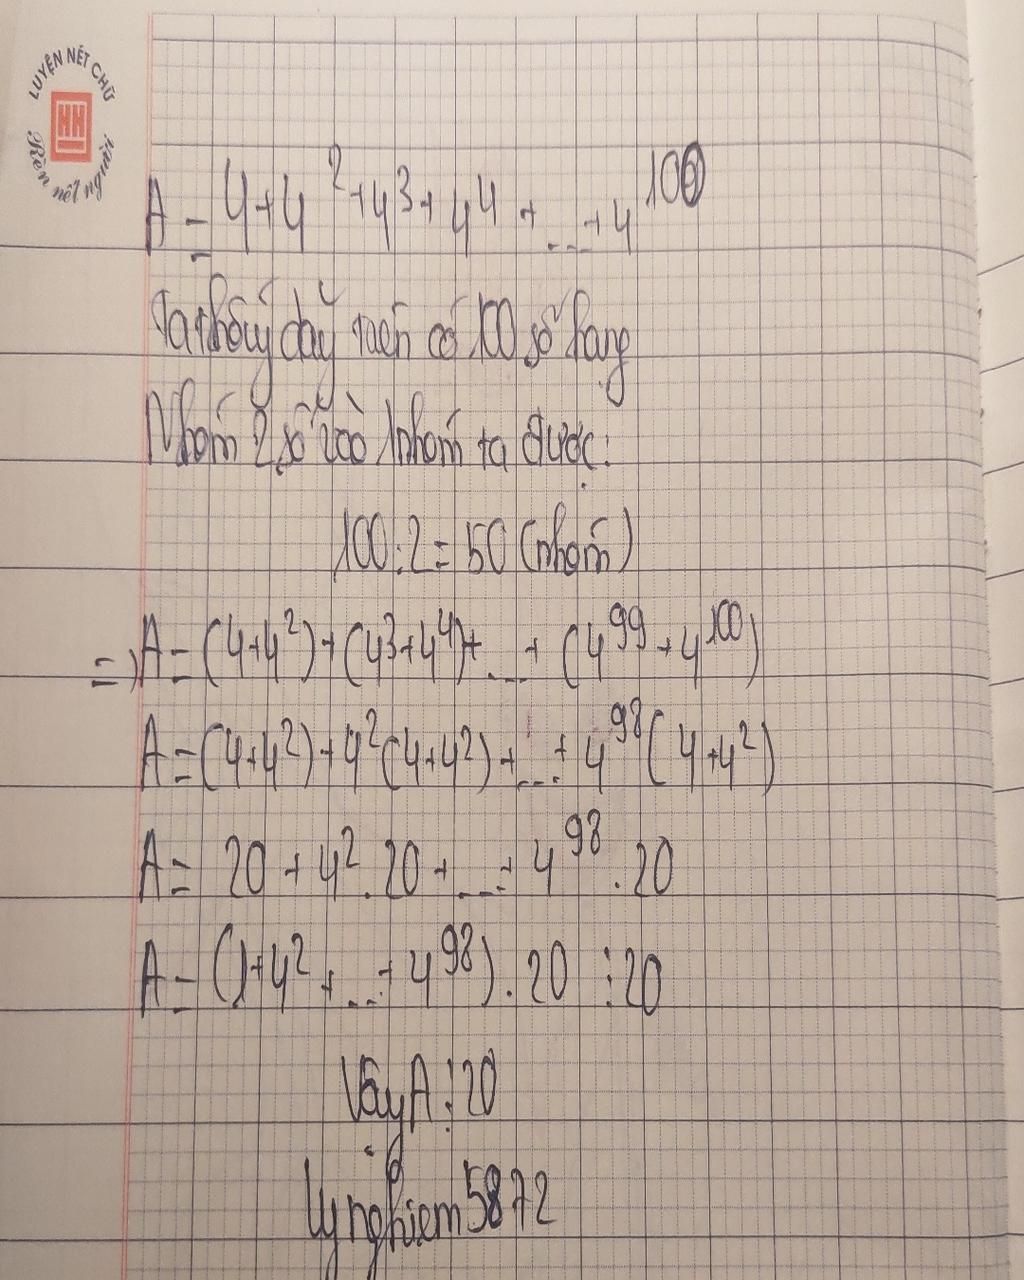 LUYỆN NÉT CHỮ
Rèn nết người
A = 4+4²+4³+4⁴+...+4¹⁰⁰
Ta thấy dãy trên có 100 số hạng
Nhóm 2 số vào 1 nhóm ta được:
100:2=50 (nhóm)
=) A=(4+4²)+(4³+4⁴)+...+(4⁹⁹+4¹⁰⁰)
A=(4+4²)+4²(4+4²)+...+4⁹⁸(4+4²)
A= 20+4².20+...+4⁹⁸.20
A=(1+4²+...+4⁹⁸).20 ⋮20
Vậy A⋮20
lynghiem5872